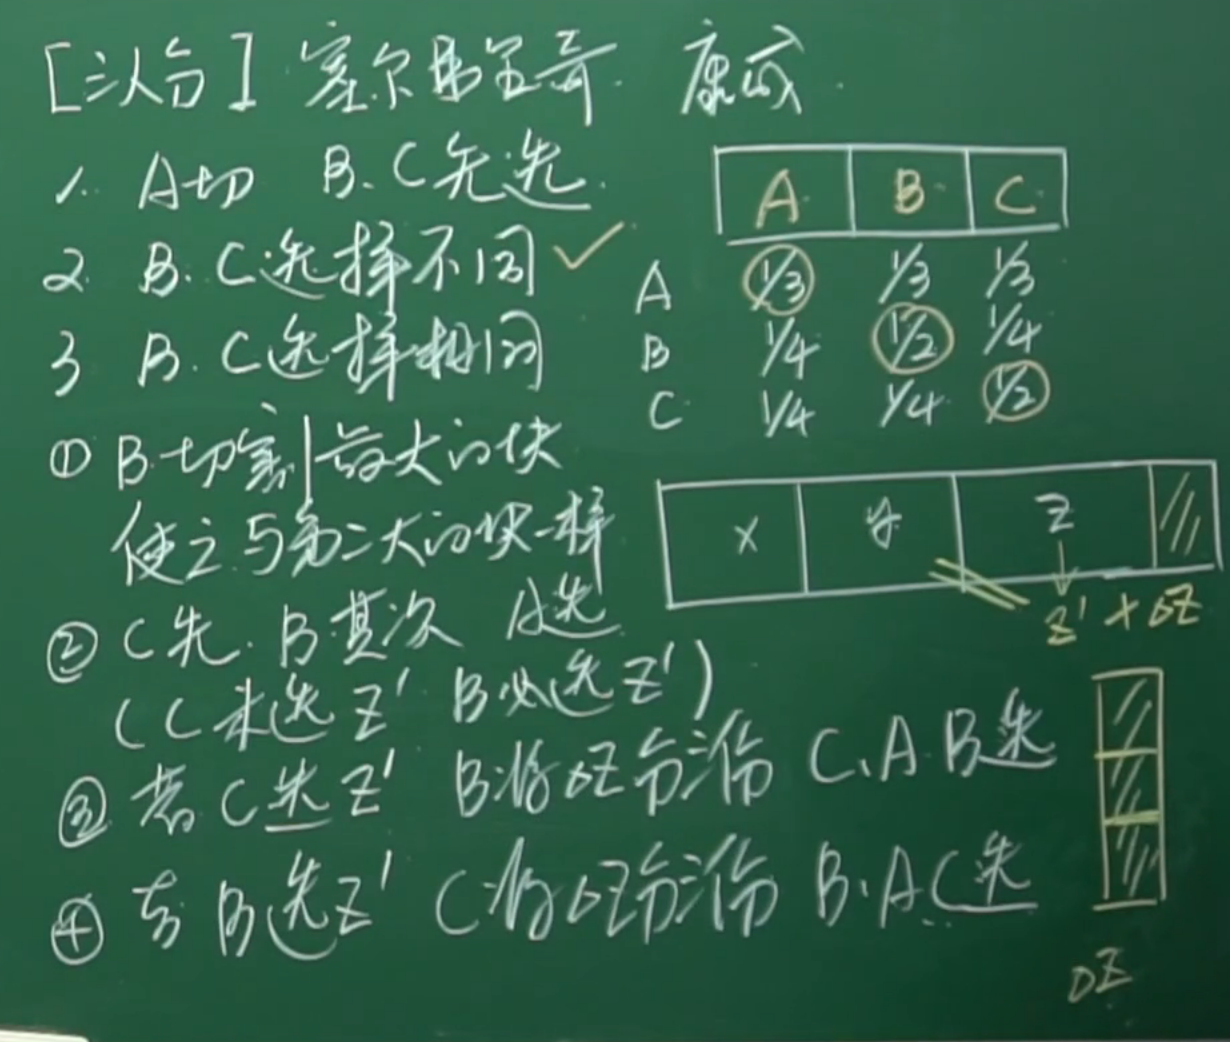 [三人分] 塞尔弗里奇 康威
1. A切 B、C先选
2. B、C选择不同 ✓
3 B、C选择相同
① B切割最大的块
使之与第二大的块一样
② C先 B其次 A选
(C未选Z' B必选Z')
③ 若C选Z' B将ΔZ分三份 C、A、B选
④ 若B选Z' C将ΔZ分三份 B、A、C选
A B C
A 1/3 1/3 1/3
B 1/4 1/2 1/4
C 1/4 1/4 1/2
x y z
z' + ΔZ
ΔZ